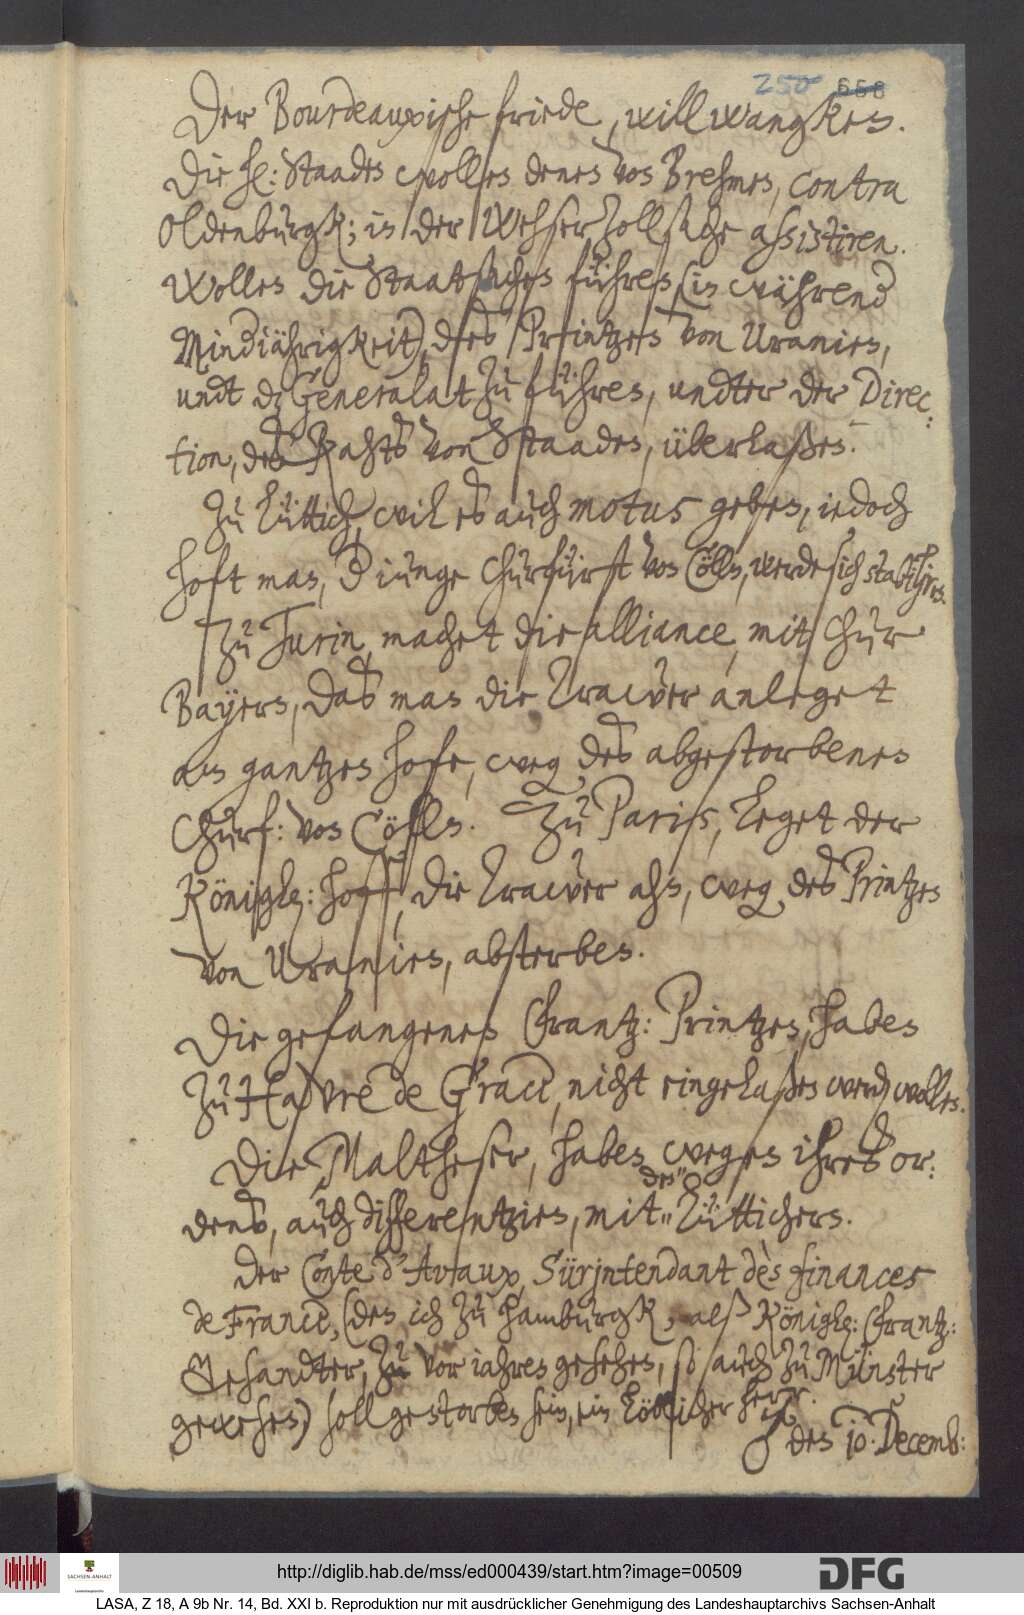 250 658
Der Bourdeauxische friede, will wangken.
Die he: Staaden wollen denen von Brehmen, contra
Oldenburgk; in der Wehserzollsache assistiren.
Wollen die Staatsachen führen, (in während
Mindiährigkeit) des Printzen von Uranien,
undt die Generalat zu führen, undter der Direc:
tion, des Rahts von Staaden, überlaßen.
Zu Lüttich, wil es auch motus geben, iedoch
hoft man, der iunge Churfürst von Cölln, werde sich stabiliren.
Zu Turin, machet die alliance, mit Chur
Bayern, das man die Trawer anleget
am gantzen hofe, weg des abgestorbenen
Churf: von Cölln. Zu Pariß, leget der
Königle: hoff, die Trawer ahn, weg des Printzen
von Uranien, absterben.
Die gefangenen frantz: Printzen, haben
zu Havre de Grace, nicht eingelaßen werden wollen.
Die Maltheser, haben wegen ihres or:
dens, auch differentzien, mit den Lüttichern.
Der Conte d'Avaux, Sürjntendant dès finances
de France, (den ich zu hamburgk, alß Königle: frantz:
Gesandter, zu vor iahren gesehen, so auch zu Münster
gewesen) soll gestorben sein, ein löblicher herr.
♂ den 10. Decemb:
http://diglib.hab.de/mss/ed000439/start.htm?image=00509
SACHSEN-ANHALT
DFG
LASA, Z 18, A 9b Nr. 14, Bd. XXI b. Reproduktion nur mit ausdrücklicher Genehmigung des Landeshauptarchivs Sachsen-Anhalt